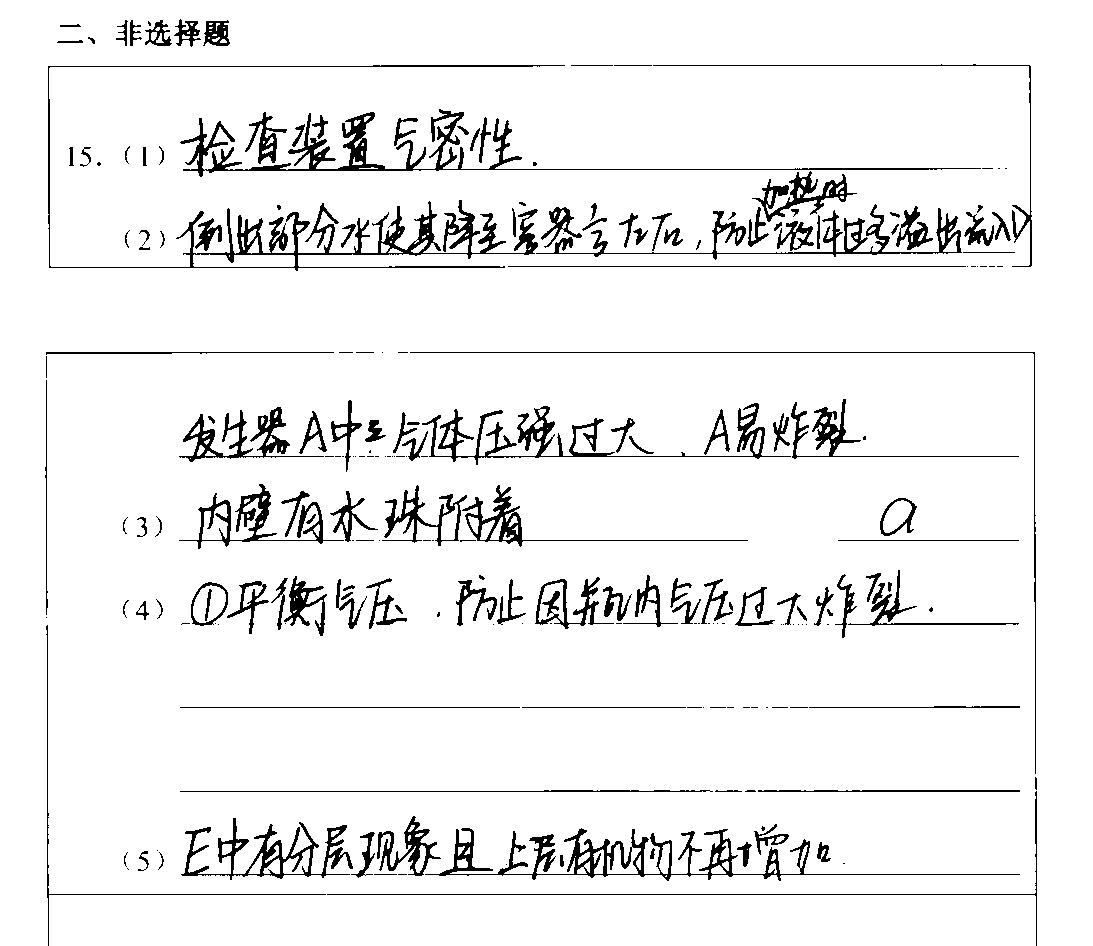 二、非选择题
15.（1）检查装置气密性.
加热时
（2）倒出部分水使其降至容器左右，防止液体过多溢出流入D
发生器A中气体压强过大，A易炸裂.
（3）内壁有水珠附着 a
（4）①平衡气压，防止因瓶内气压过大炸裂.
（5）E中有分层现象且上层有机物不再增加.